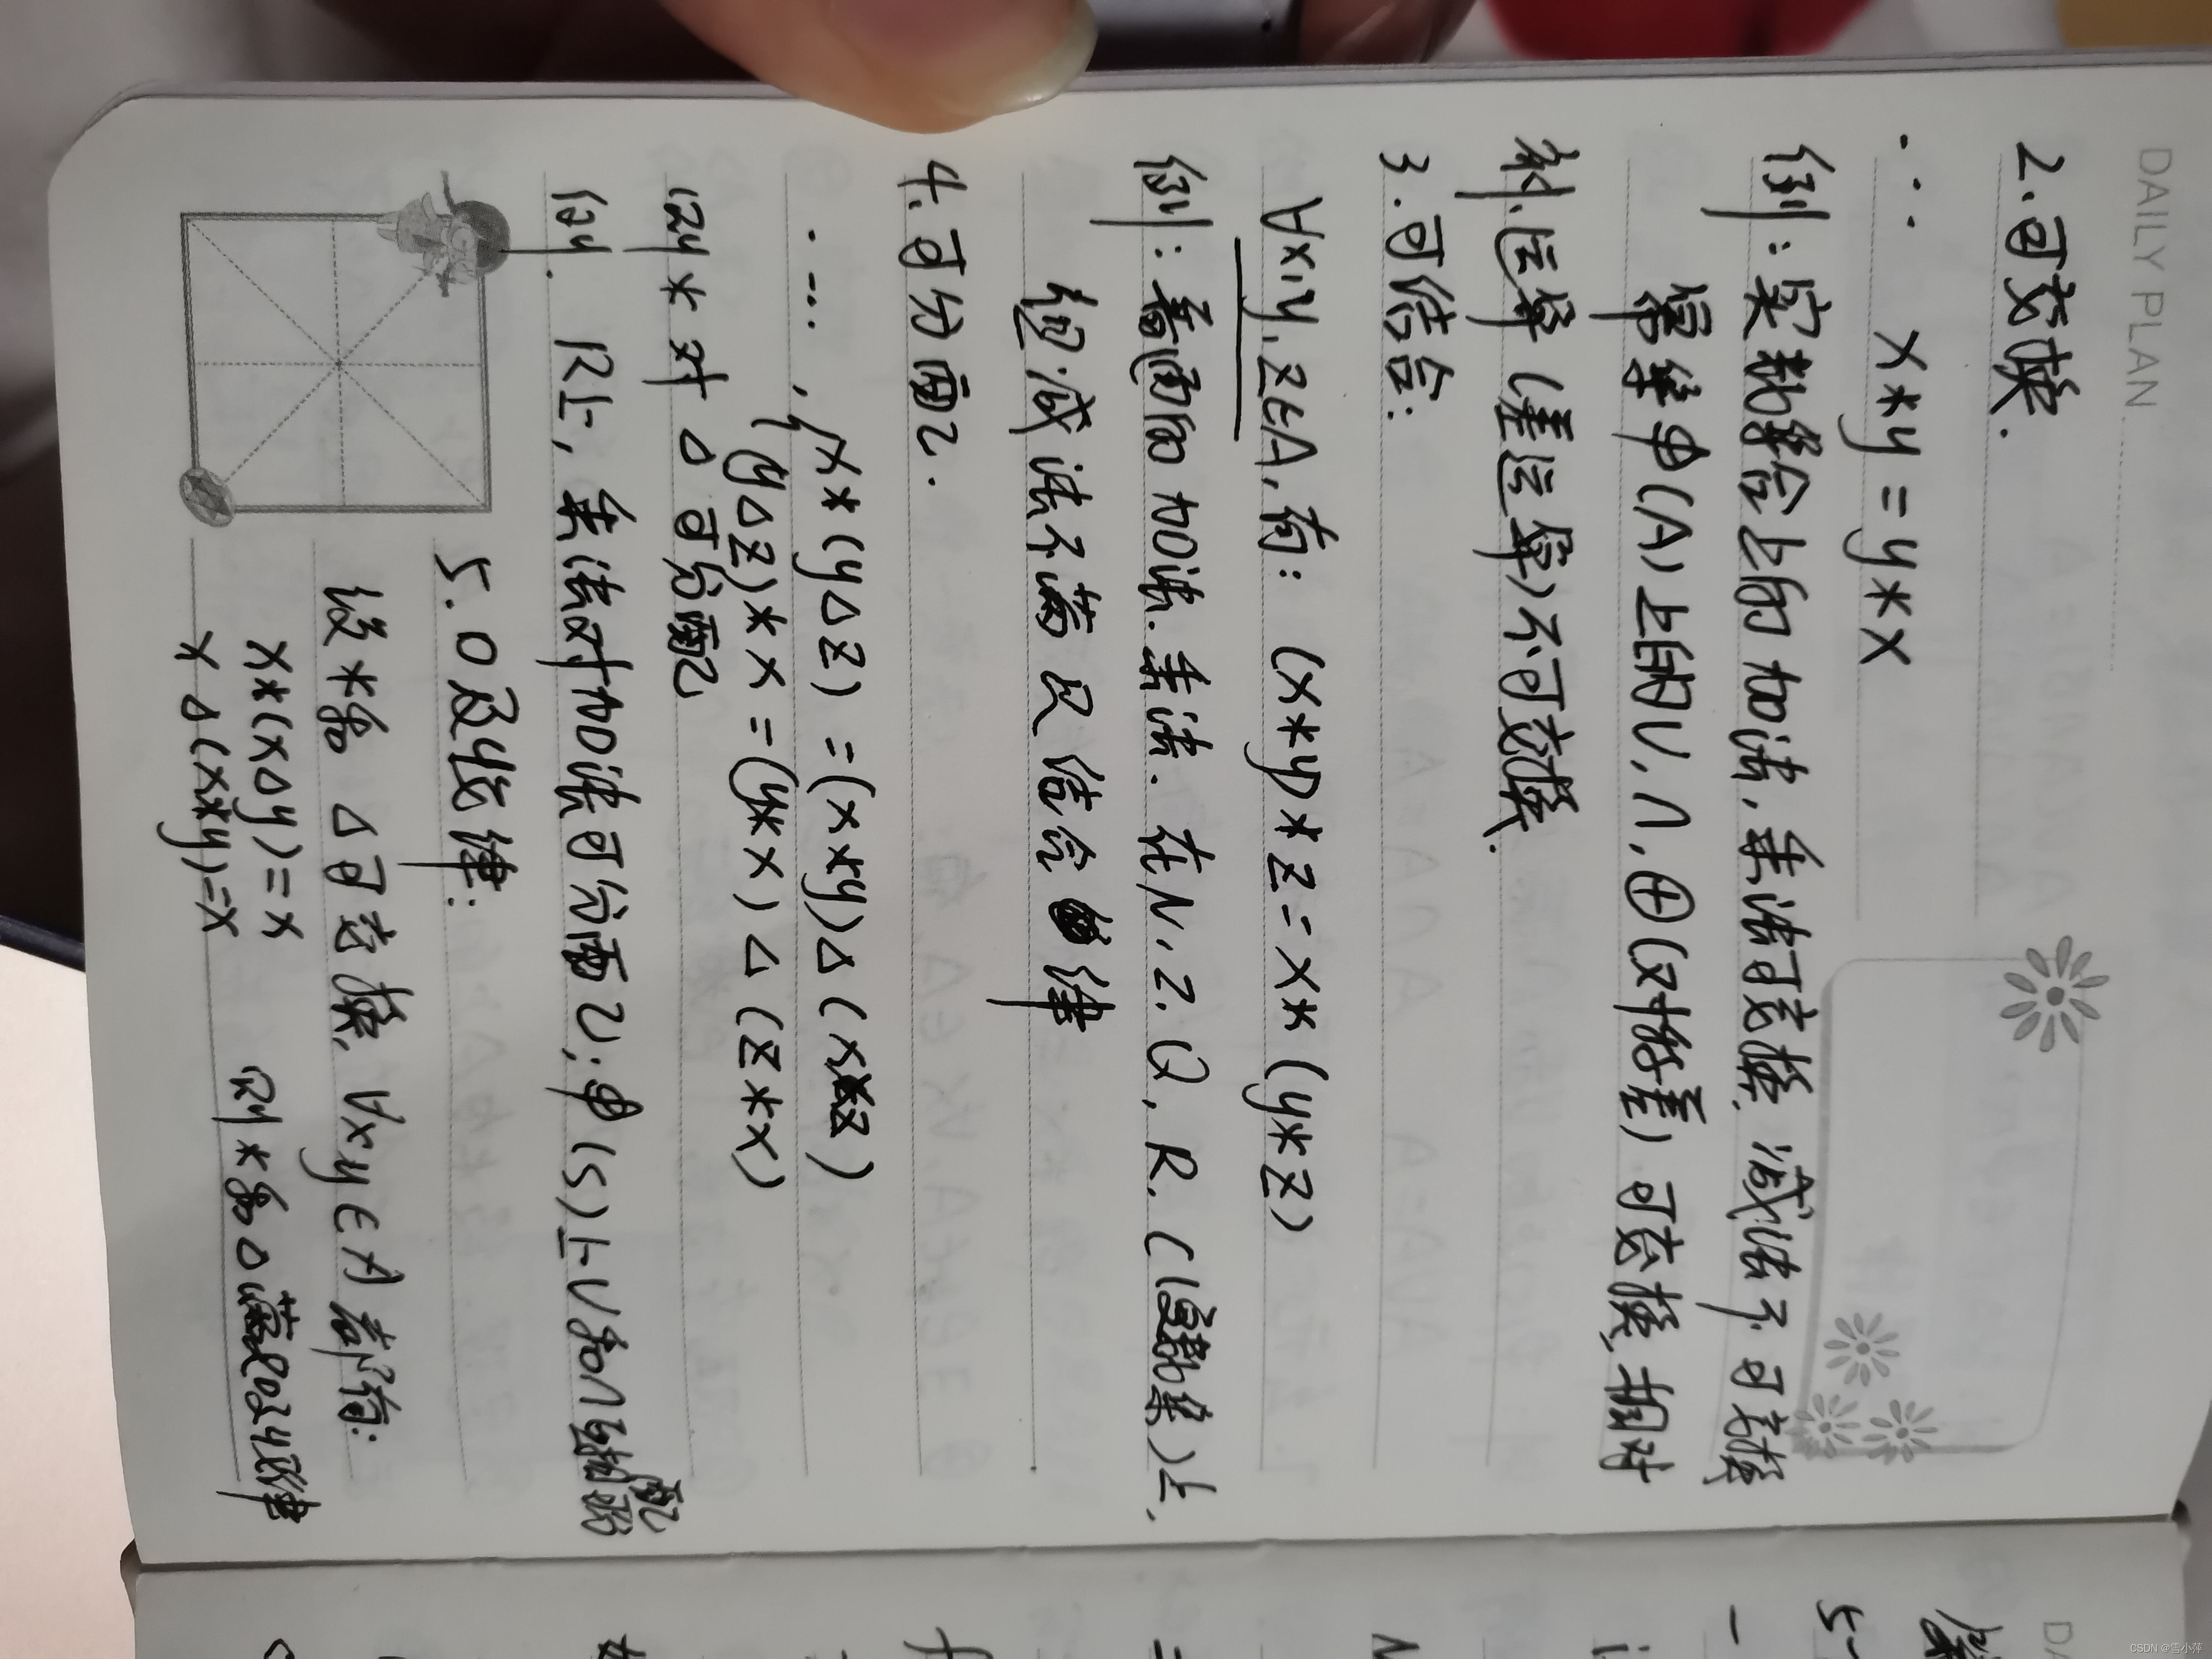 DAILY PLAN
2.可交换.
... x*y=y*x
例:实数集合上的加法,乘法可交换,减法不可交换
幂集φ(A)上的∪,∩,⊕(对称差)可交换,相对
补运算(差运算)不可交换.
3.可结合:
∀x,y,z∈A,有: (x*y)*z=x*(y*z)
例:普通的加法.乘法.在N,Z,Q,R,C(复数集)上,
但减法不满足结合律
4.可分配.
....,有x*(y△z)=(x*y)△(x*z)
(y△z)*x=(y*x)△(z*x)
则*对△可分配
例. R上,乘法对加法可分配;φ(s)上∪和∩互相分配
5.吸收律:
设*和△可交换,∀xy∈A都有:
x*(x△y)=x
x△(x*y)=x 则*和△满足吸收律
DA
CSDN @雪小萍